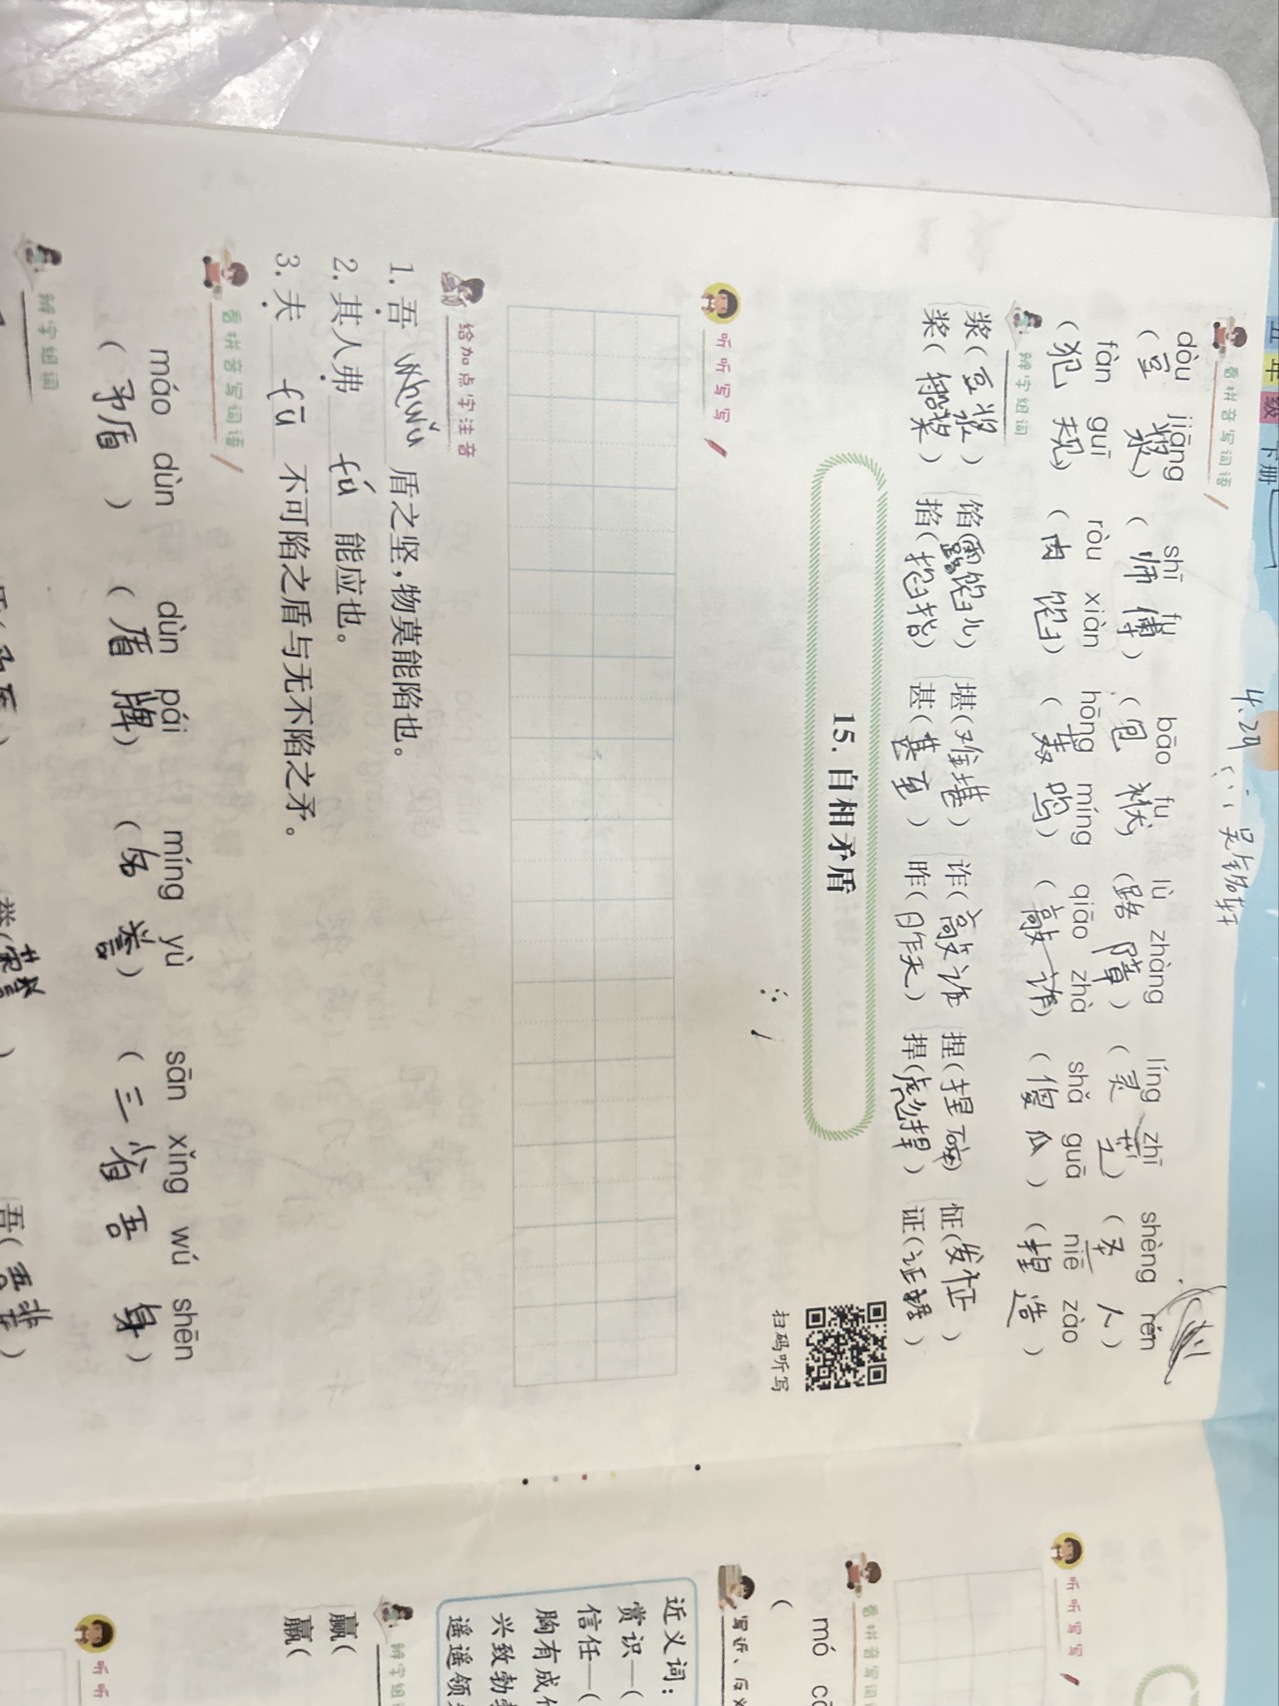 五年级 下册
4.29 吴锦轩
看拼音写词语
dòu jiāng shī fu bāo fu lù zhàng líng zhī shèng rén
(豆浆) (师傅) (包袱) (路障) (灵芝) (圣人)
fàn guī ròu xiàn hōng míng qiāo zhà shǎ guā niē zào
(犯规) (肉馅) (轰鸣) (敲诈) (傻瓜) (捏造)
辨字组词
浆(豆浆) 馅(露馅儿) 堪(难堪) 诈(敲诈) 捏(捏碎) 怔(发怔)
桨(船桨) 掐(掐指) 甚(甚至) 昨(昨天) 捍(捍) 证(证据)
15. 自相矛盾
扫码听写
听听写写
给加点字注音
1. 吾 wú 盾之坚,物莫能陷也。
2. 其人弗 fú 能应也。
3. 夫 fū 不可陷之盾与无不陷之矛。
看拼音写词语
máo dùn dùn pái míng yù sān xǐng wú shēn
(矛盾) (盾牌) (名誉) (三省吾身)
辨字组词
誉( ) 吾(吾辈)
听听写写
看拼音写词语
mó
(
写近、反义
近义词:
赏识—(
信任—(
胸有成竹
兴致勃勃
遥遥领先
辨字组词
赢(
羸(
听听